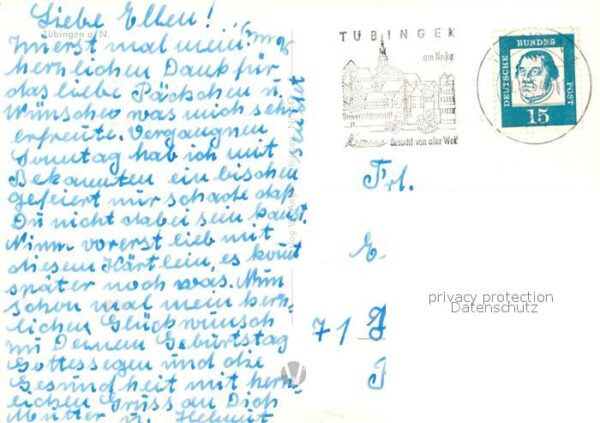 Liebe Ellen!
Tübingen a. N.
Zuerst mal mein
herzlichen Dank für
das liebe Päckchen u.
Wünschen was mich sehr
erfreute. Vergangnen
Sonntag hab ich mit
Bekannten ein bischen
gefeiert nur schade daß
Du nicht dabei sein kanst.
Nimm vorerst lieb mit
diesem Kärtlein, es komt
später noch was. Nun
schon mal mein herz-
lichen Glückwunsch
zu Deinem Geburtstag
Gottessegen und die
Gesundheit mit herz-
lichen Gruss an Dich
Mutter u. Helmut
TÜBINGEN
am Neckar
Universitätsstadt
Besucht von aller Welt
DEUTSCHE BUNDES POST
15
Frl.
E.
71
privacy protection
Datenschutz